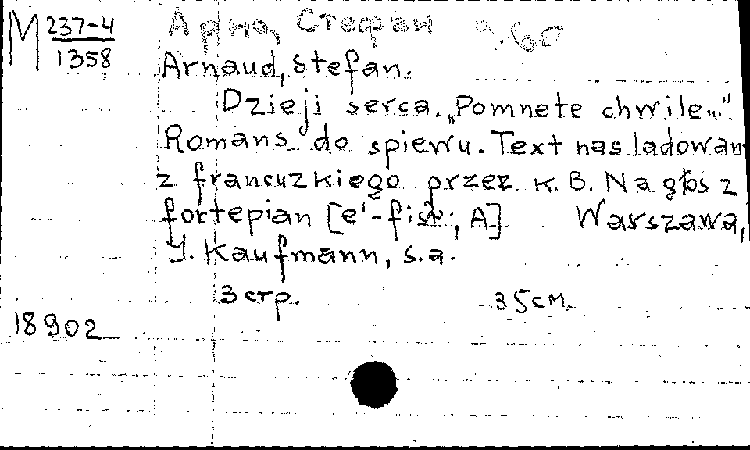 M 237-4
1358
Арно, Стефан
Arnaud, Stefan.
Dzieji serca. „Pomnete chwile..."
Romans do spiewu. Text nasladowan
z francuzkiego przez K. B. Na głos z
fortepian [e'-fis², A] Warszawa,
J. Kaufmann, s.a.
3 стр. 35 см.
18902